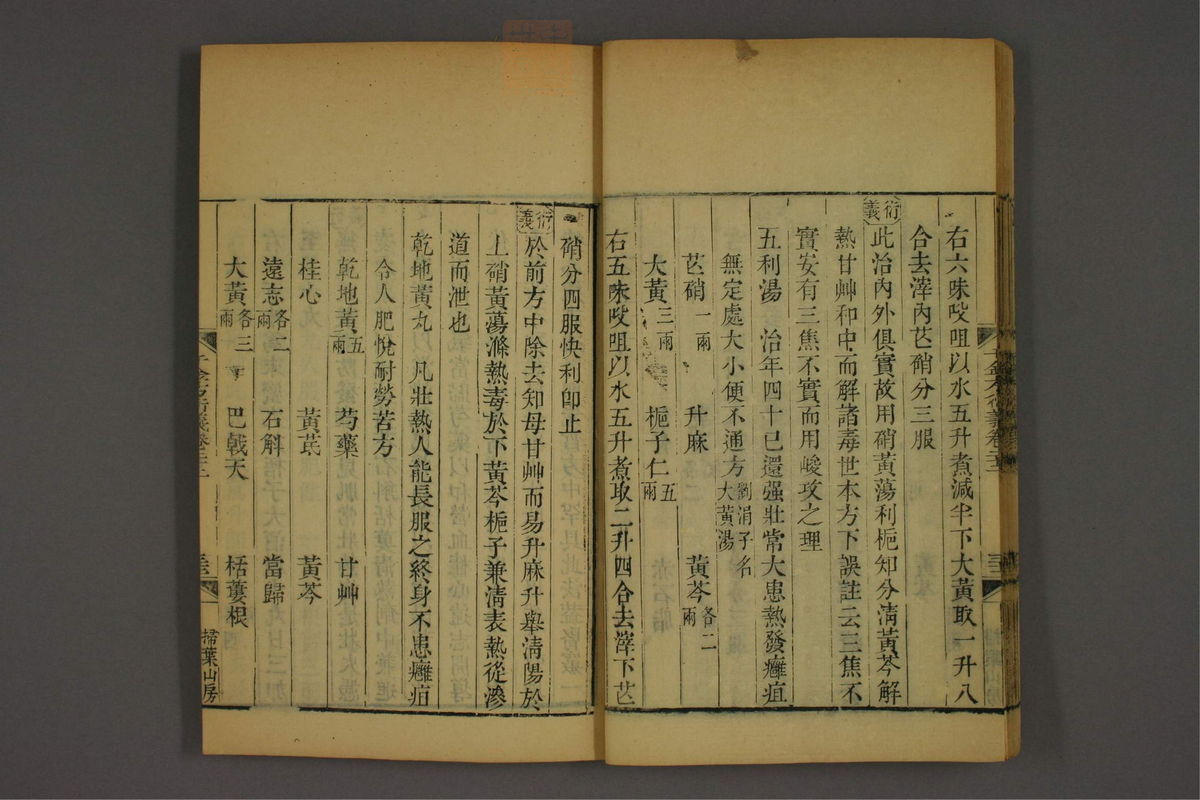 右六味㕮咀以水五升煮減半下大黃取一升八
合去滓內芒硝分三服
衍義
此治內外俱實故用硝黃蕩利梔知分淸黃芩解
熱甘艸和中而解諸毒世本方下誤註云三焦不
實安有三焦不實而用峻攻之理
五利湯 治年四十已還强壯常大患熱發癰疽
無定處大小便不通方 劉涓子名大黃湯
芒硝一兩 升麻 黃芩各二兩
大黃三兩 梔子仁五兩
右五味㕮咀以水五升煮取二升四合去滓下芒
硝分四服快利卽止
衍義
於前方中除去知母甘艸而易升麻升舉淸陽於
上硝黃蕩滌熱毒於下黃芩梔子兼淸表熱從滲
道而泄也
乾地黃丸 凡壯熱人能長服之終身不患癰疽
令人肥悅耐勞苦方
乾地黃五兩 芍藥 甘艸
桂心 黃芪 黃芩
遠志各二兩 石斛 當歸
大黃各三兩 巴戟天 栝蔞根
千金方衍義卷二十二
掃葉山房